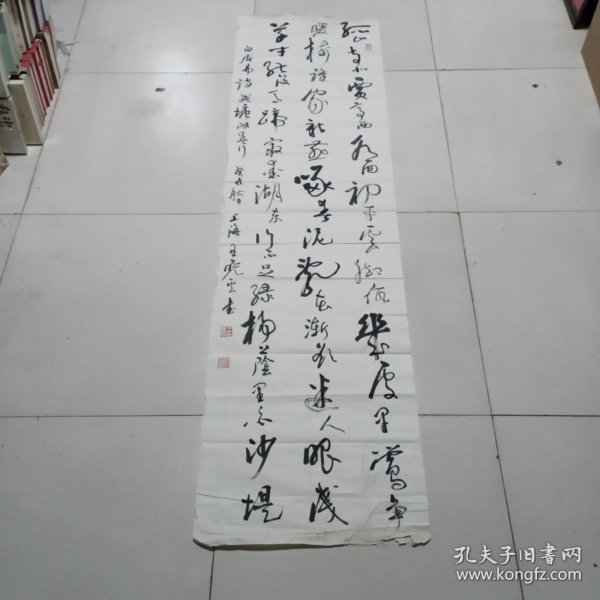 孤山寺北贾亭西水面初平云脚低几处早莺争
暖树谁家新燕啄春泥乱花渐欲迷人眼浅
草才能没马蹄最爱湖东行不足绿杨荫里白沙堤
白居易诗钱塘湖春行 癸未秋 上海 王晓云书
孔夫子旧书网
www.kongfz.com